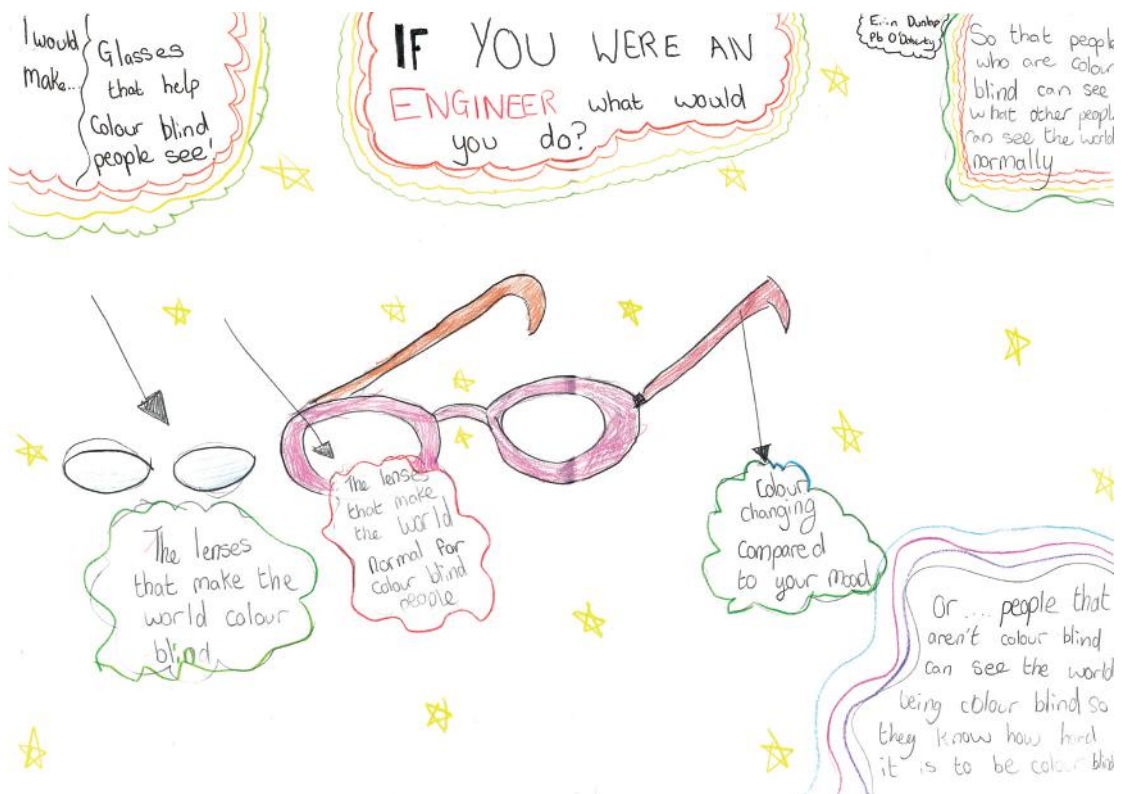 I would
make...
Glasses
that help
Colour blind
people see!
IF YOU WERE AN
ENGINEER what would
you do?
Erin Dunlop
P6 O'Doherty
So that people
who are colour
blind can see
what other people
can see the world
normally
The lenses
that make the
world colour
blind
The lenses
that make
the world
normal for
colour blind
people
Colour
changing
compared
to your mood
Or .... people that
aren't colour blind
can see the world
being colour blind so
they know how hard
it is to be colour blind